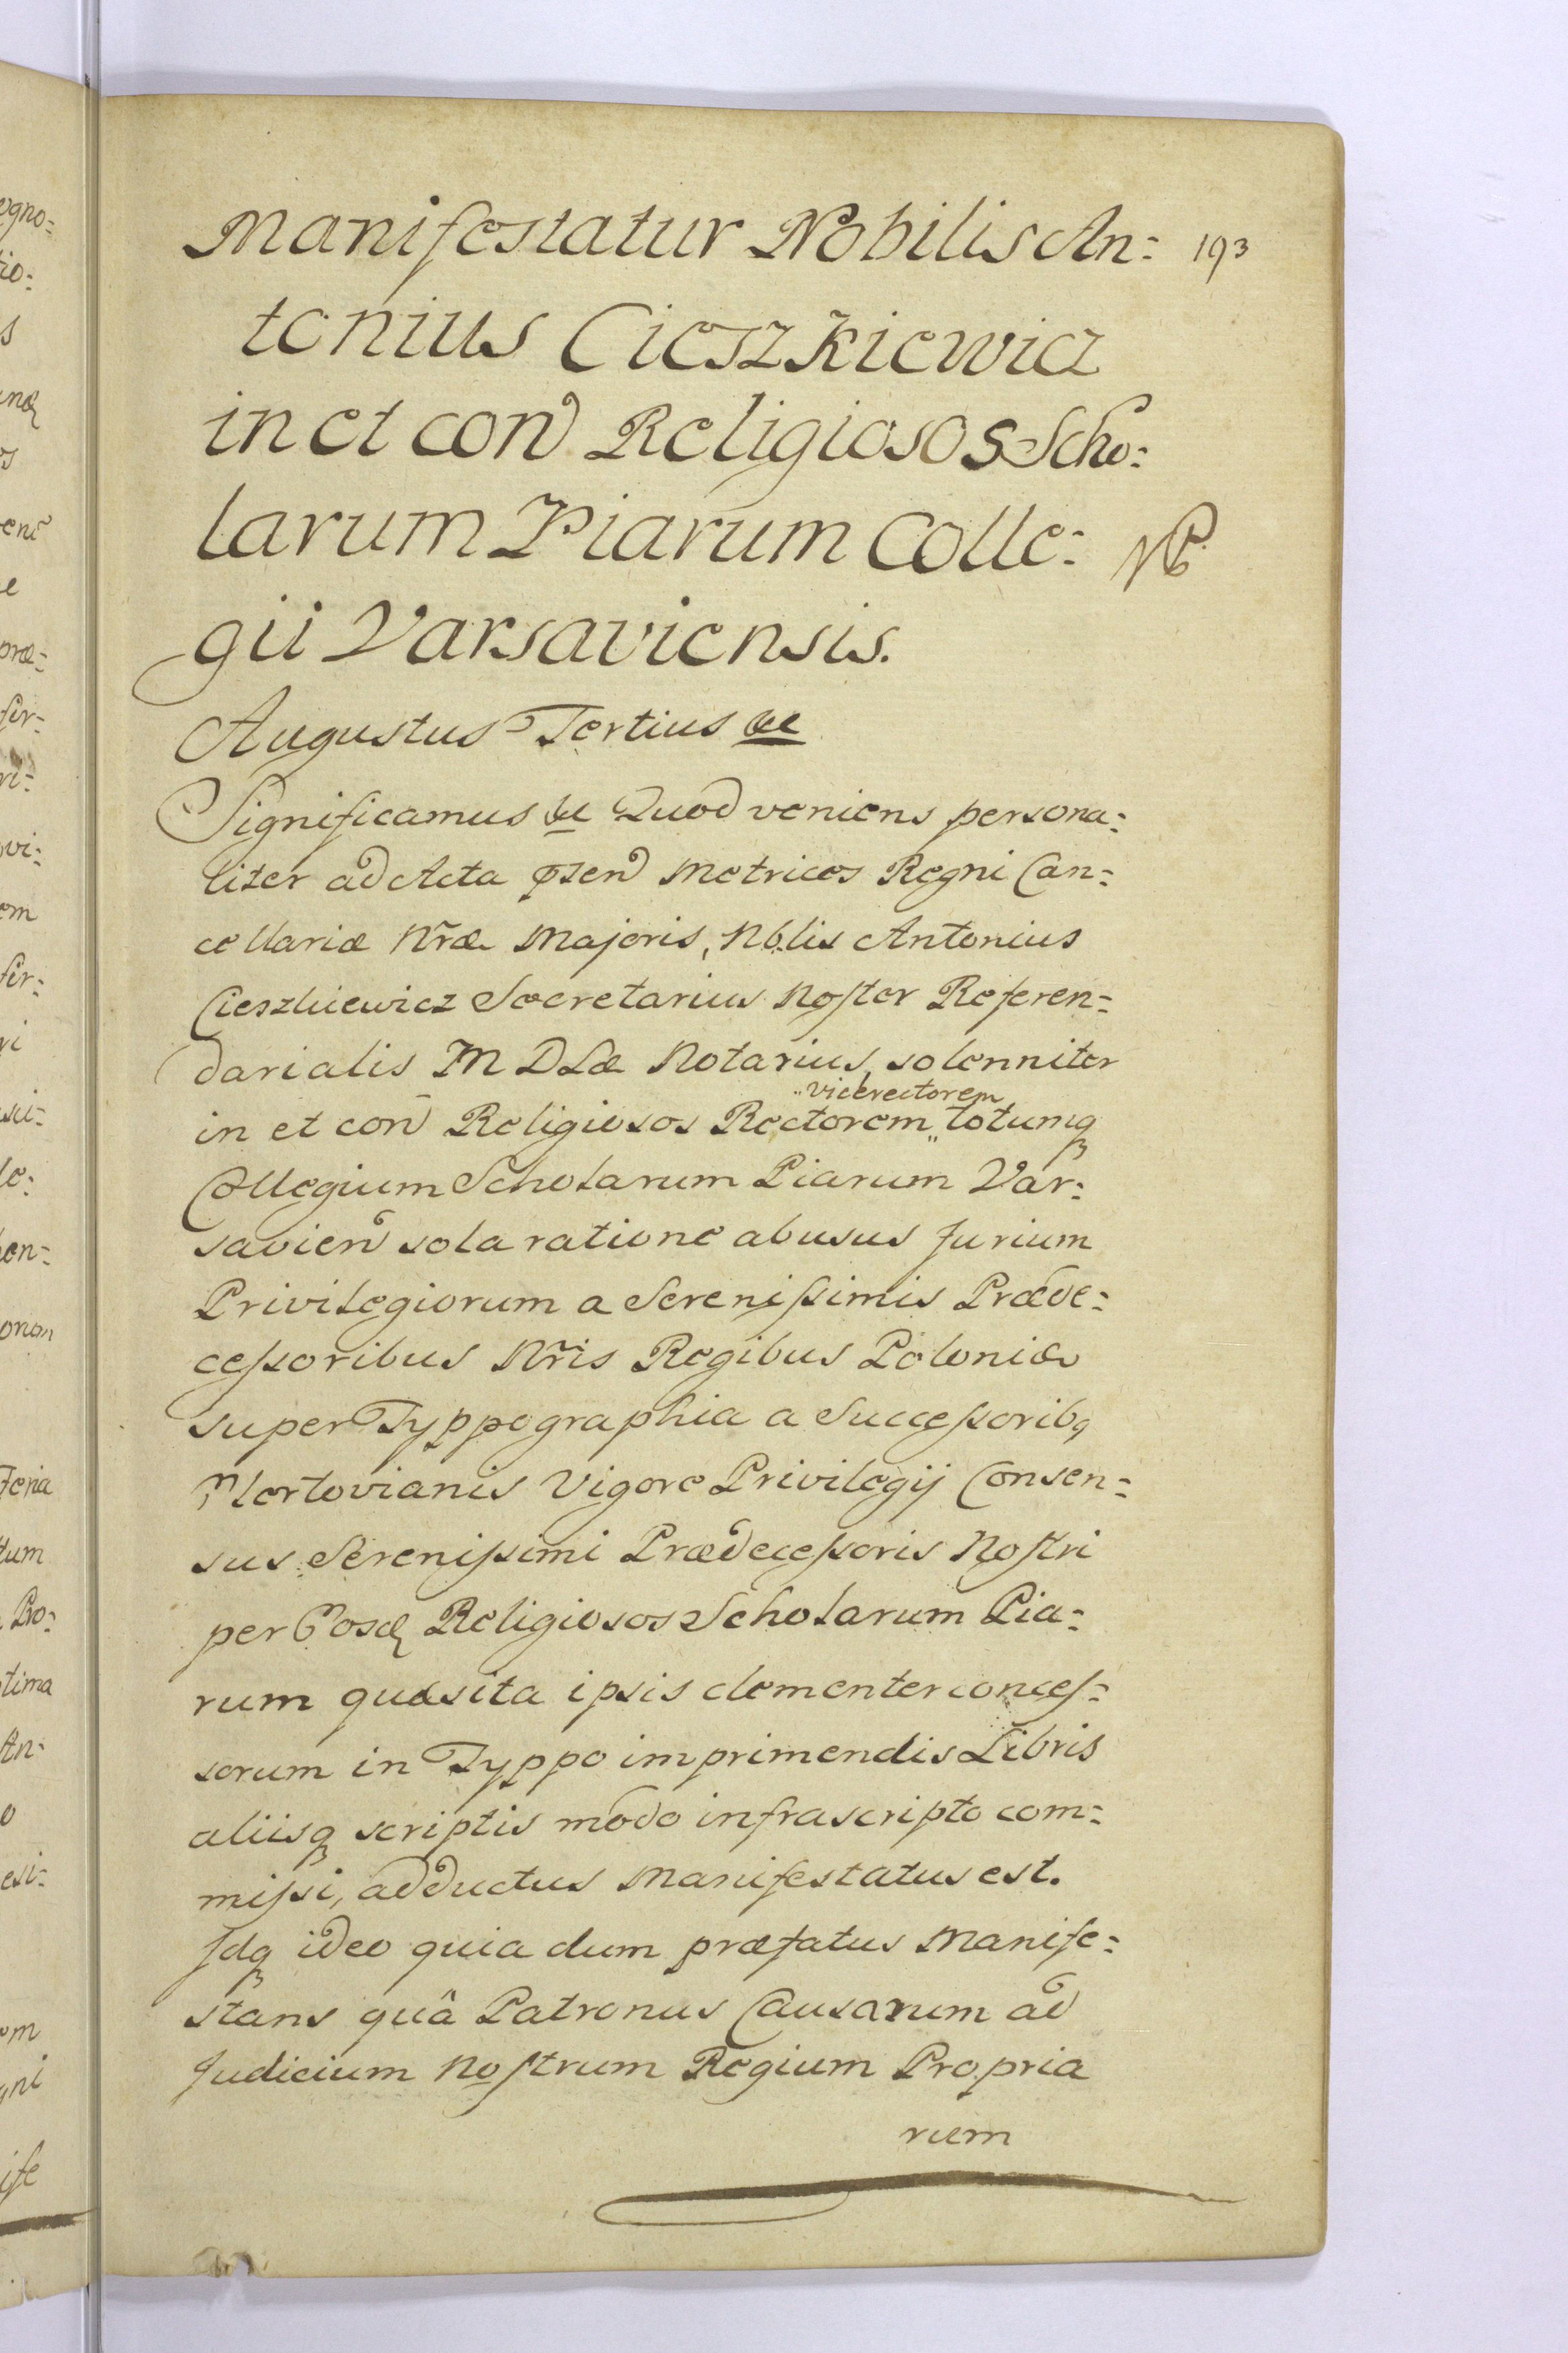 Manifestatur Nobilis An:
193
tonius Cieszkiewicz
in et con Religiosos Scho:
larum Piarum Colle:
NB
gii Varsaviensis.
Augustus Tertius &c
Significamus &c Quod veniens persona:
liter ad Acta pñsen Metrices Regni Can:
cellariæ Nrãe Majoris, Nblis Antonius
Cieszkiewicz Secretarius Noster Referen:
darialis M D Læ Notarius, solenniter
vicerectorem
in et con Religiosos Rectorem totumq
Collegium Scholarum Piarum Var:
savien sola ratione abusus Jurium
Privilegiorum a Serenissimis Præde:
cessoribus Nrĩs Regibus Poloniæ
super Typpographia a Successorib9
vigore Privilegij Consen:
sus Serenissimi Prædecessoris Nostri
per Eosd Religiosos Scholarum Pia:
rum quæsita ipsis clementer conces:
sorum in Typpo imprimendis Libris
aliisq scriptis modo infrascripto com:
missi, adductus Manifestatus est.
Idq ideo quia dum præfatus Manife:
stans quâ Patronus Causarum ad
Judicium Nostrum Regium Propria
rum